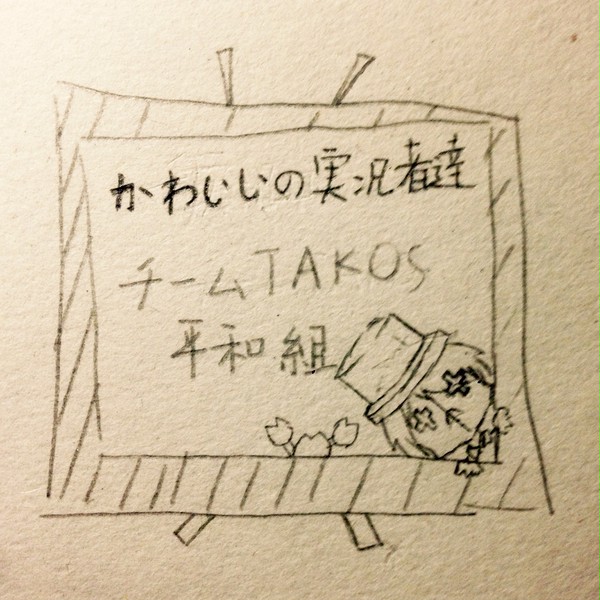 かわいじの実況者達
チームTAKOS
平和組